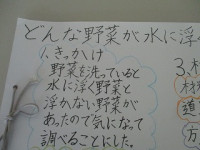 どんな野菜が水に浮
1.きっかけ
野菜を洗っていると
水に浮く野菜と
浮かない野菜が
あったので気になって
調べることにした。
3.材
材
道
方